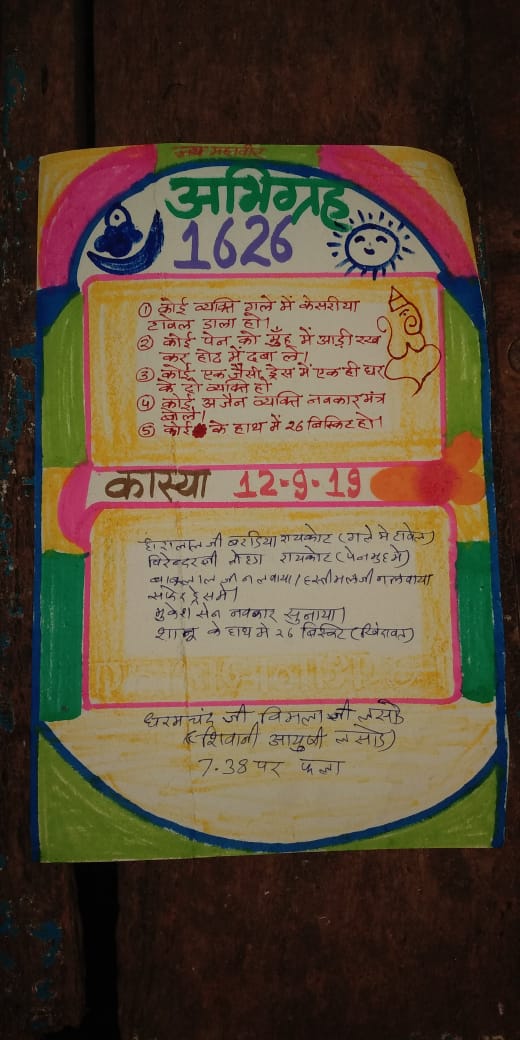 जय महावीर
अभिग्रह
1626
① कोई व्यक्ति गले में केसरीया
टावल डाला हो।
② कोई पेन को मुँह में आड़ी रख
कर होठ में दबा ले।
③ कोई एक जैसी ड्रेस में एक ही घर
के दो व्यक्ति हो
④ कोई अजैन व्यक्ति नवकारमंत्र
बोले।
⑤ कोई के हाथ में 26 बिस्किट हो।
कास्या 12-9-19
हीरालाल जी बरडिया रायकोट (गले मे टावेल)
विरेन्दर जी लोढा रायकोट (पेन मुह मे)
बाबुलाल जी नलवाया / हस्तीमलजी नलवाया
सफेद ड्रेस में।
मुकेश सेन नवकार सुनाया।
के हाथ मे 26 बिस्किट
धरमचंद जी विमला जी लसोड़
(शिवानी आयुषी लसोड़)
7.38 पर फला